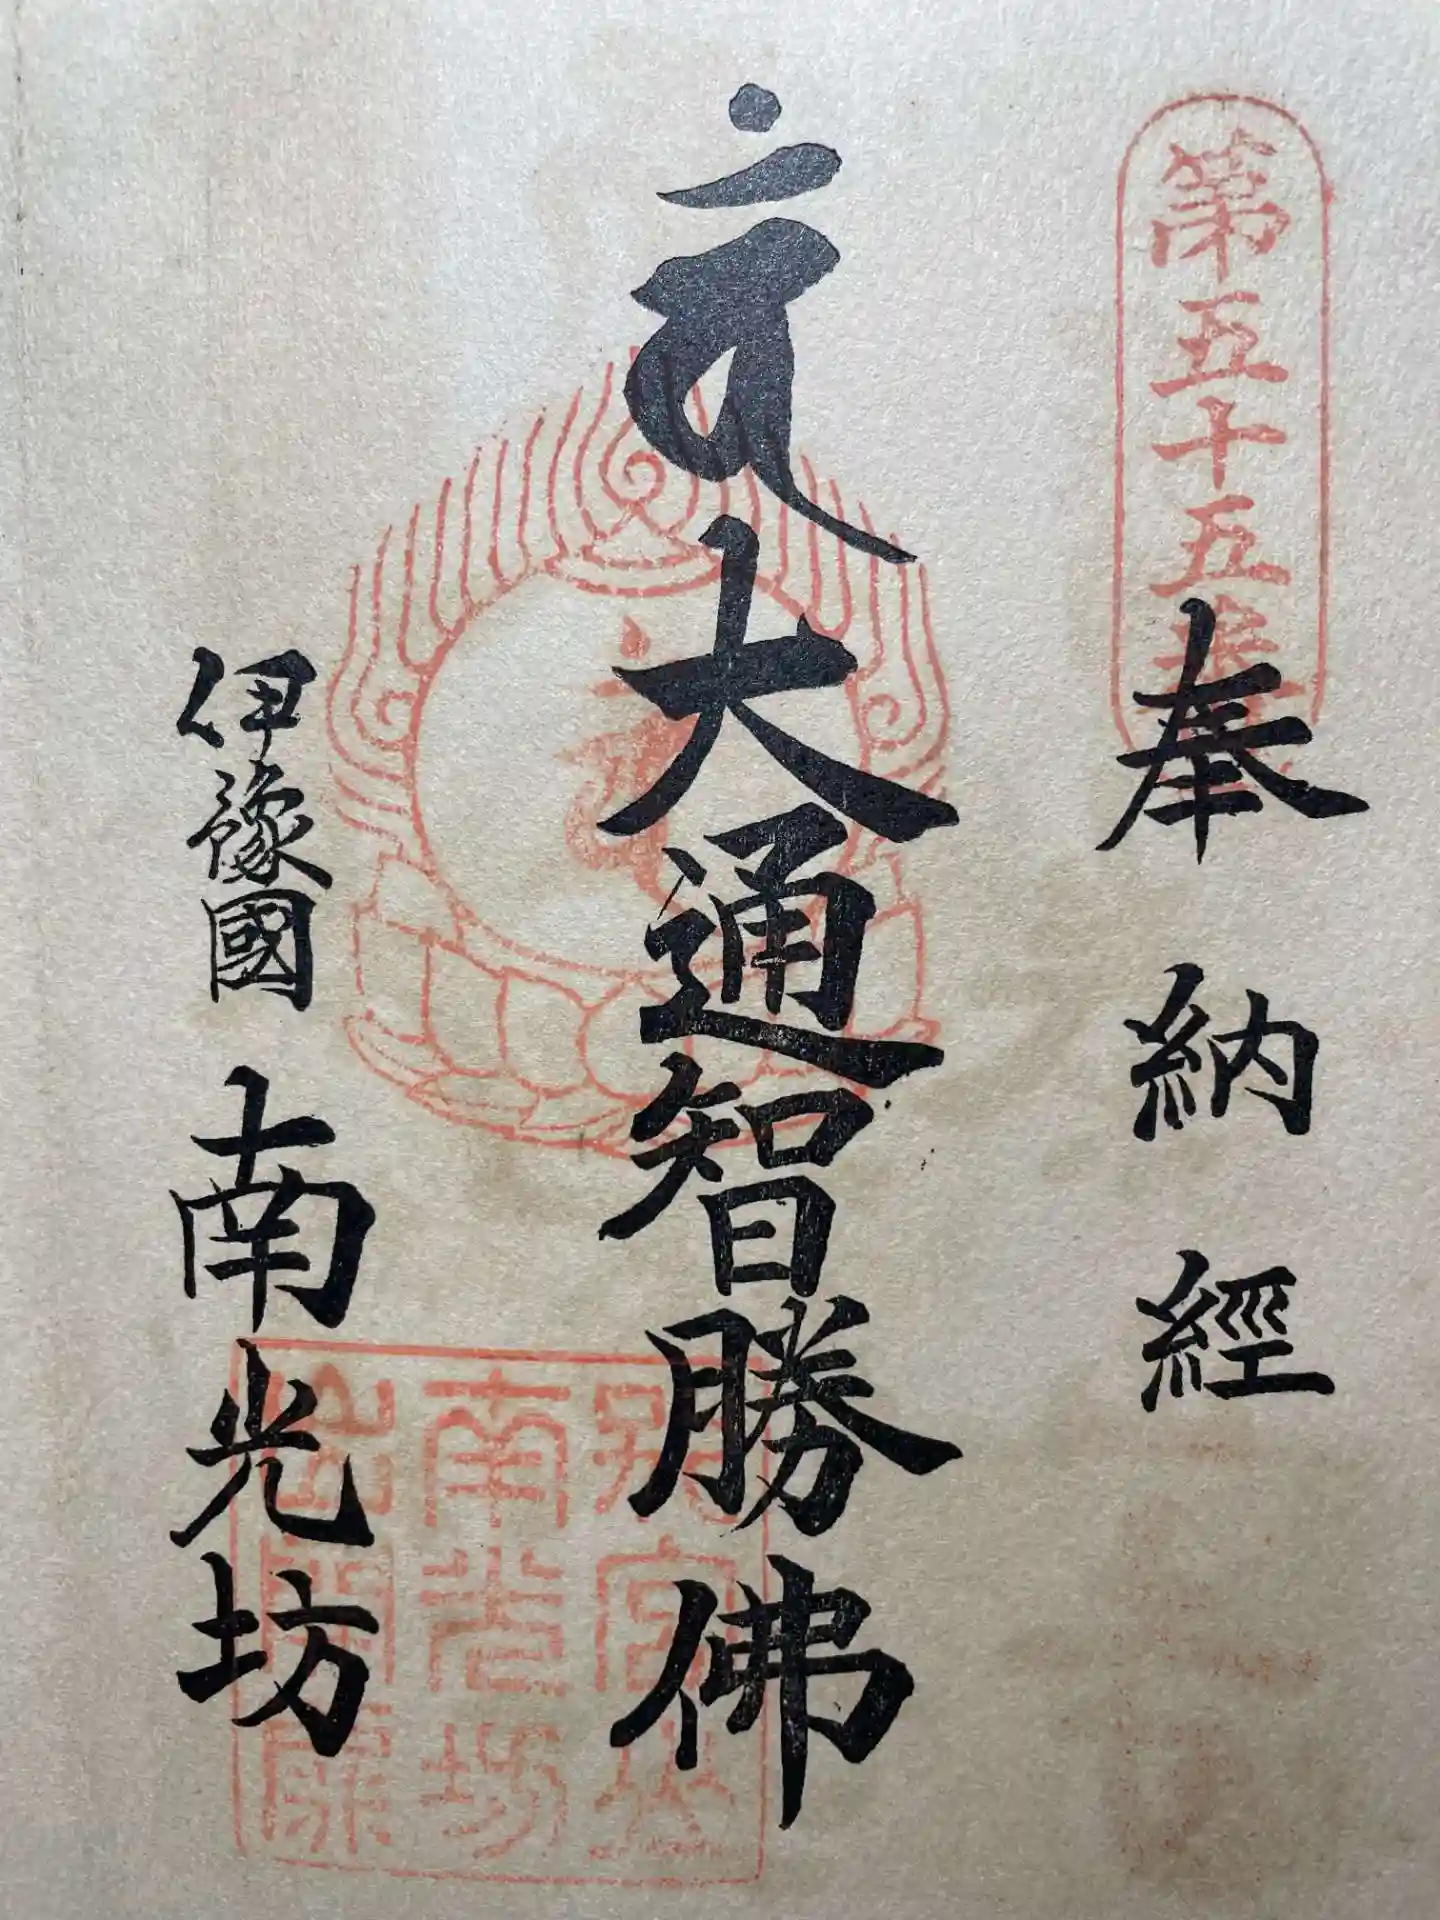 第五十五番
奉納經
大通智勝佛
伊豫國 南光坊
別宮山
南光坊